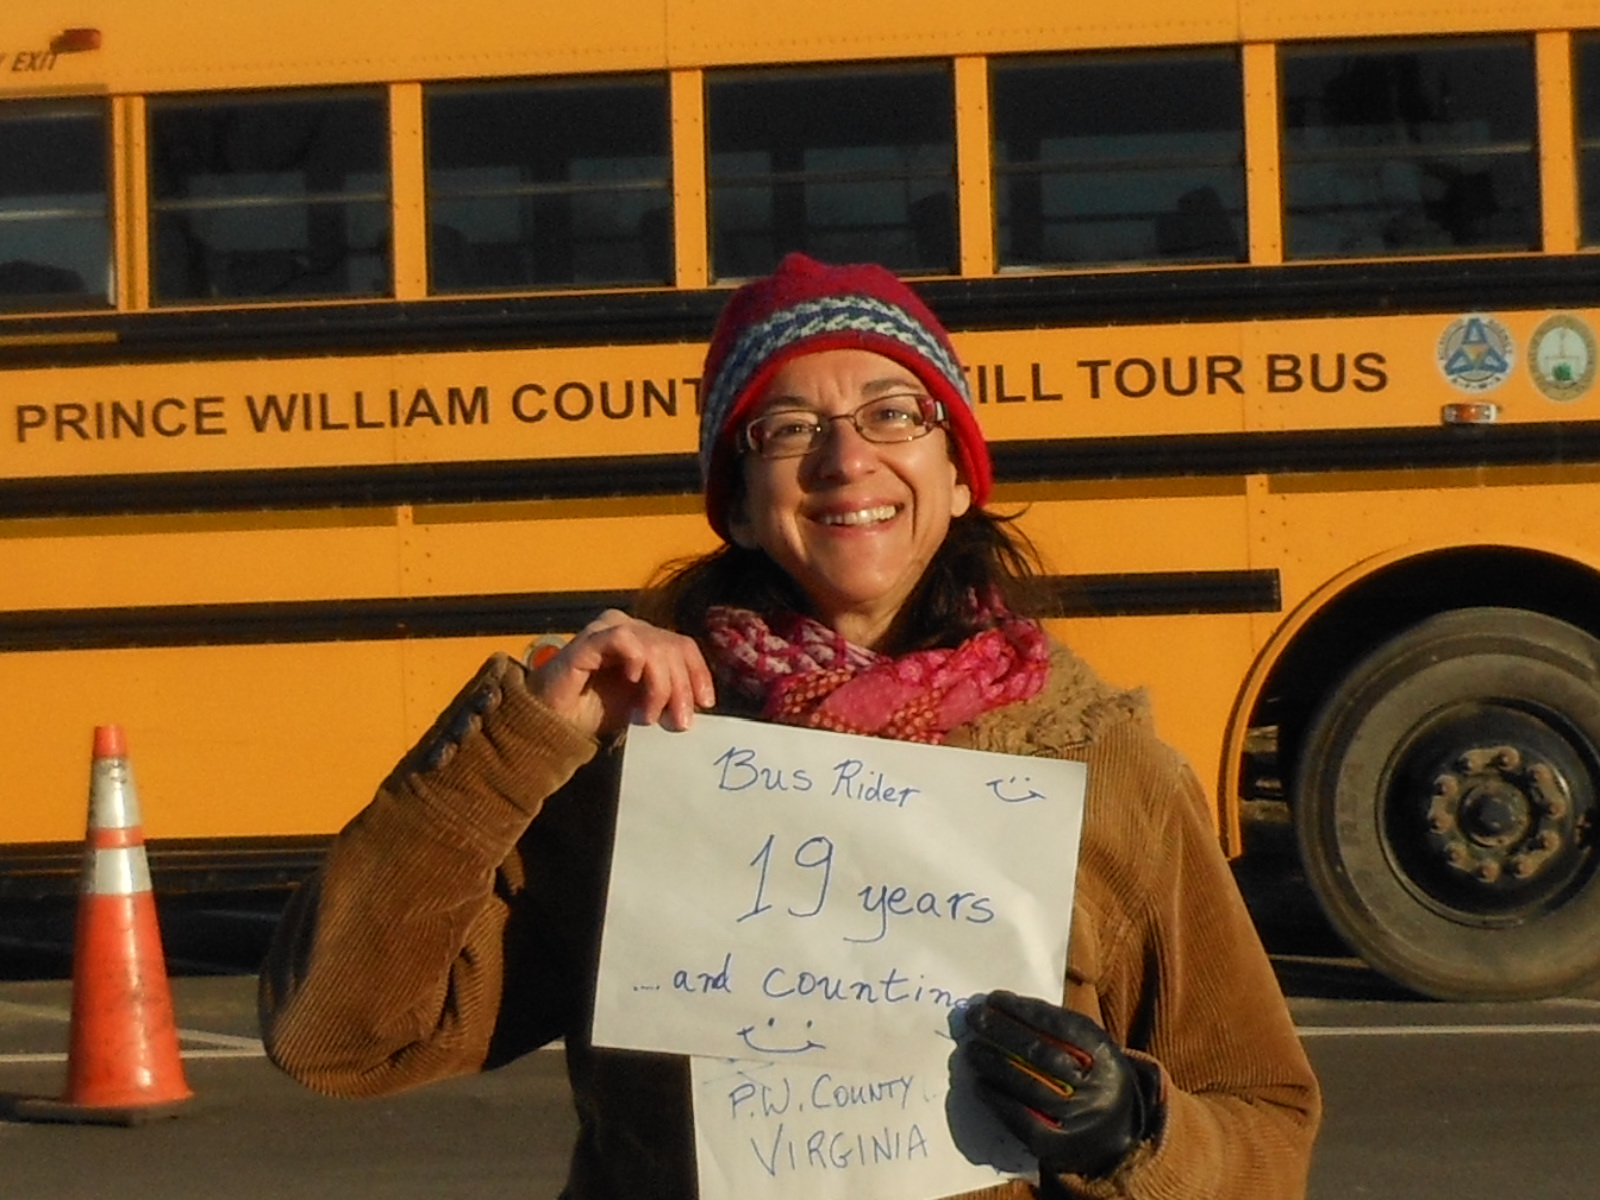 EXIT
PRINCE WILLIAM COUNT
ILL TOUR BUS
Bus Rider
19 years
.... and counting
P.W. COUNTY
VIRGINIA